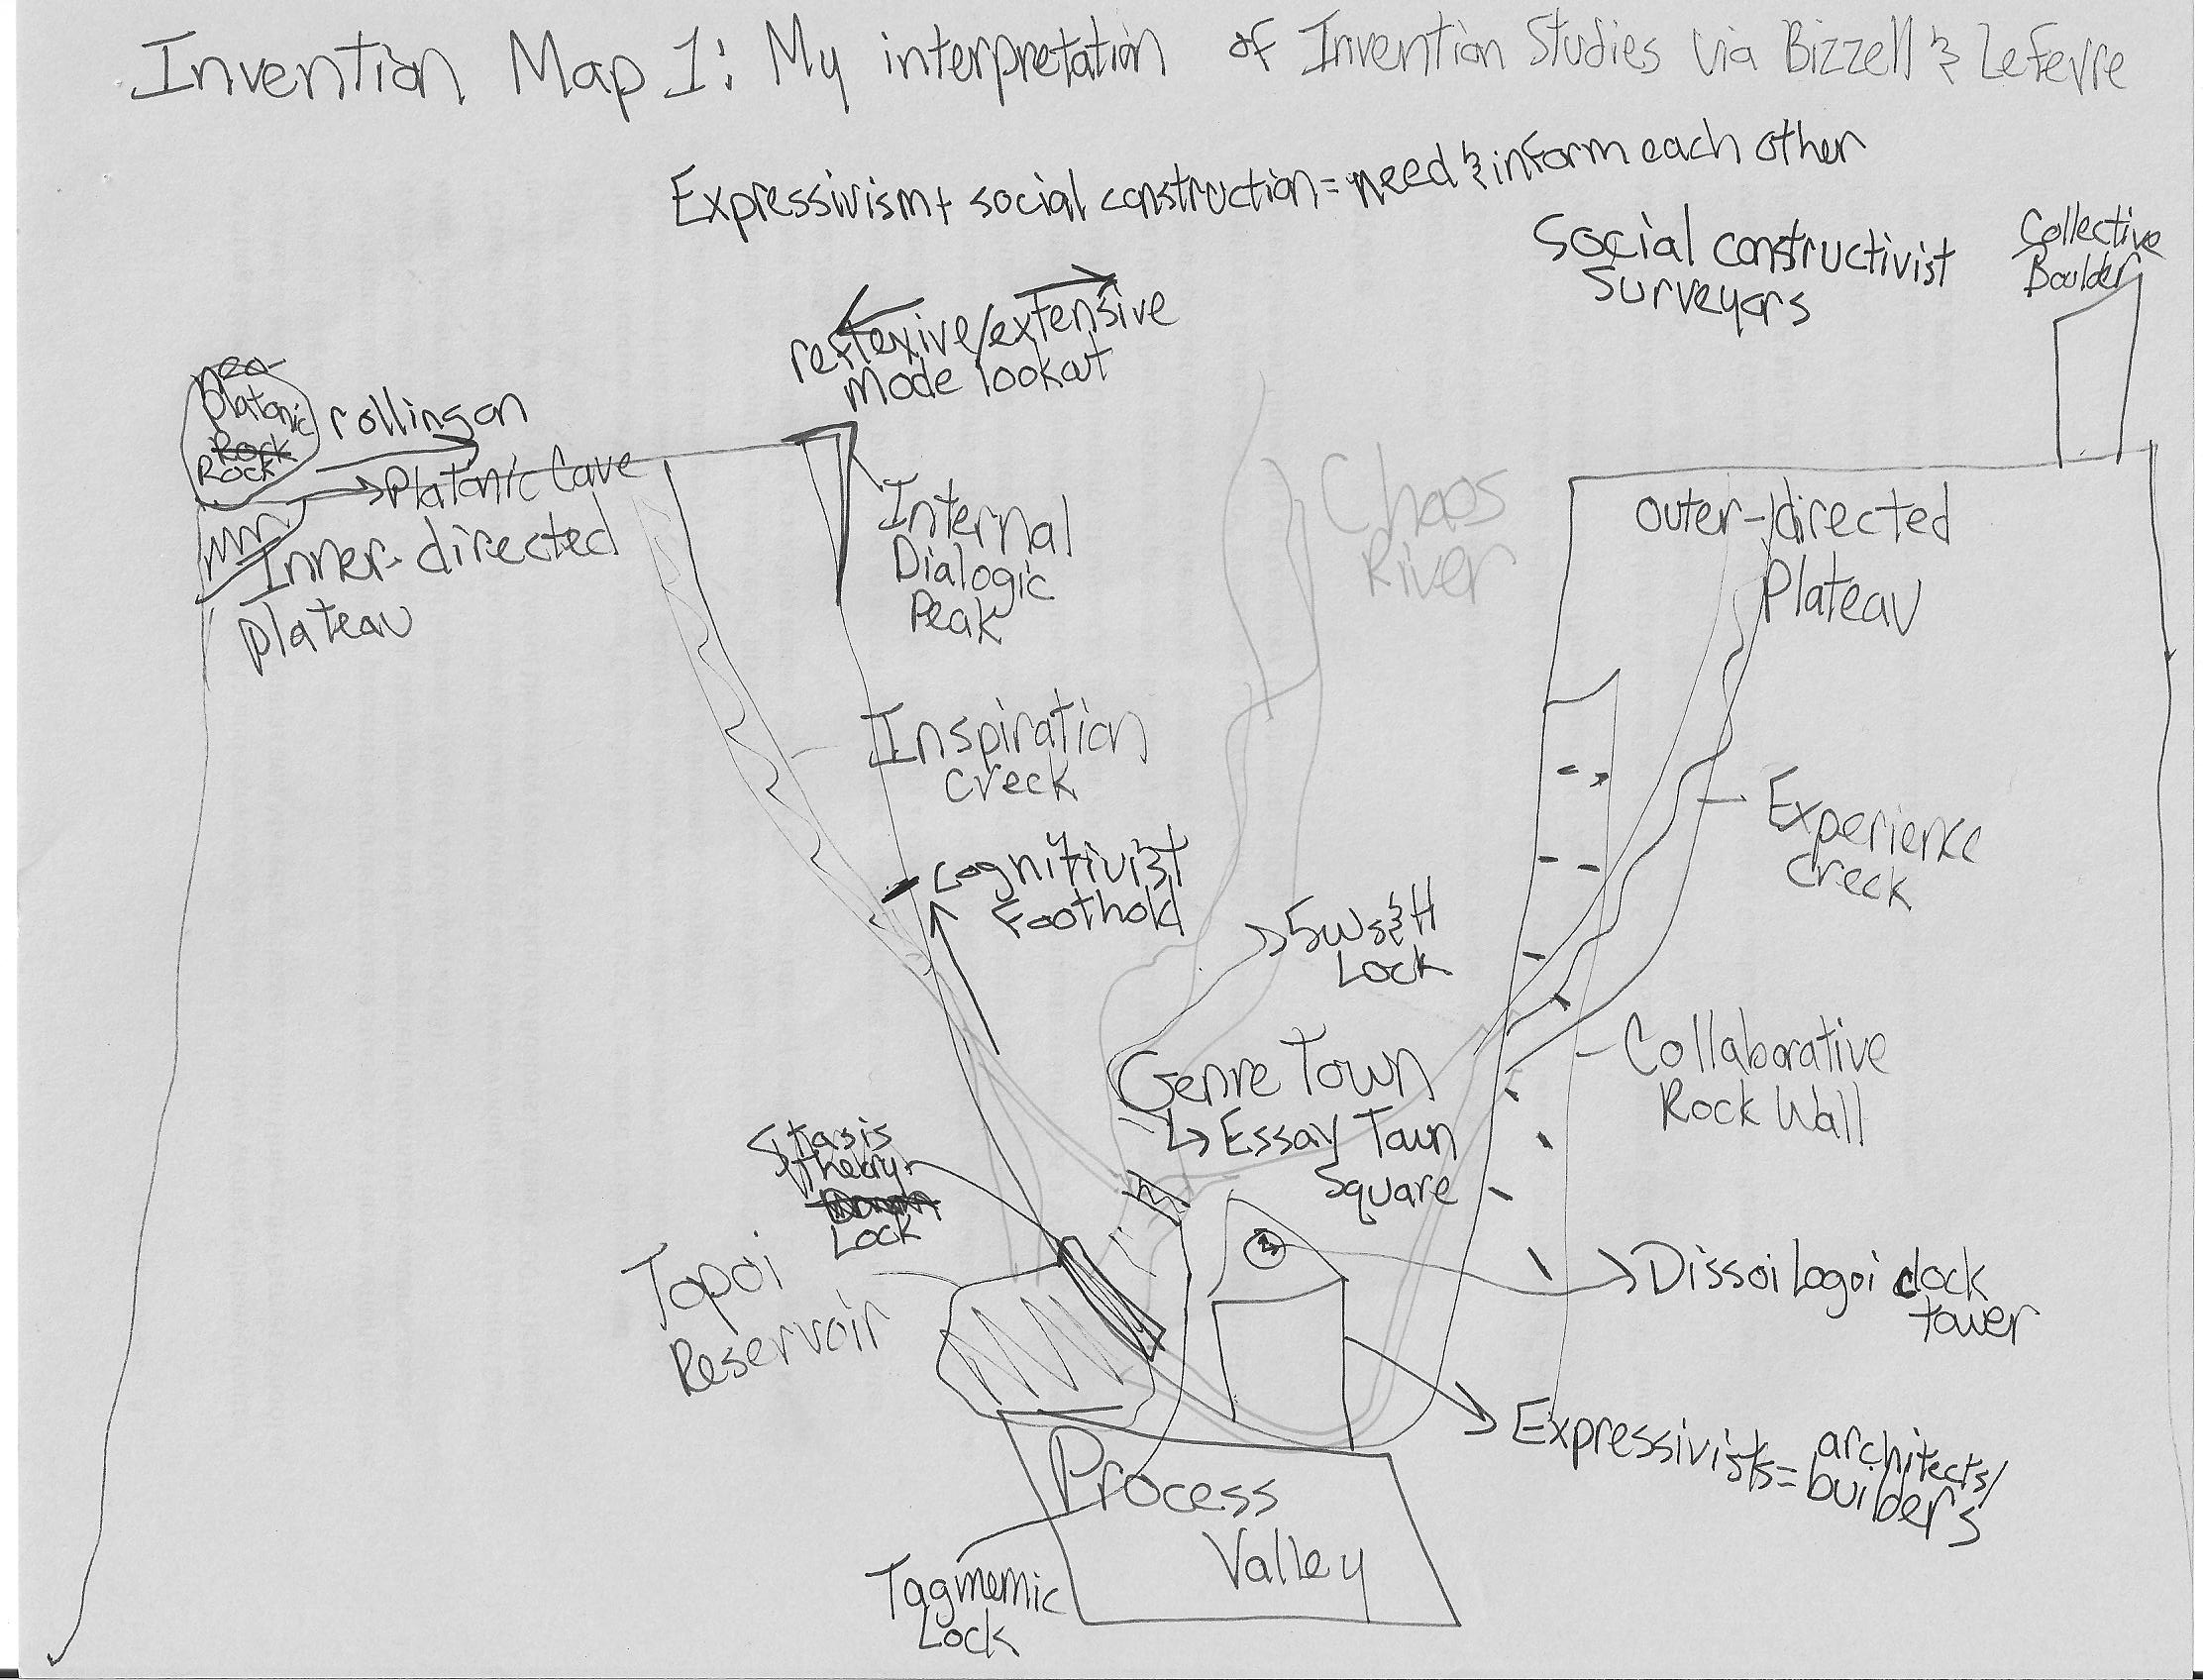 Invention Map 1: My interpretation of Invention Studies via Bizzell & Lefevre
Expressivism + social construction = need & inform each other
Social constructivist
Surveyors
Collective
Boulder
reflexive/extensive
mode lookout
neo-
platonic
Rock
Rock
rolling on
Platonic Cave
Inner-directed
plateau
Internal
Dialogic
Peak
Chaos
River
outer-directed
Plateau
Inspiration
Creek
Experience
Creek
Cognitivist
Foothold
5Ws&H
Lock
Genre Town
↳ Essay Town
Square
Collaborative
Rock Wall
Stasis
theory
Lock
Topoi
Reservoir
Dissoi logoi clock
tower
Expressivists = architects/
builders
Process
Valley
Tagmemic
Lock